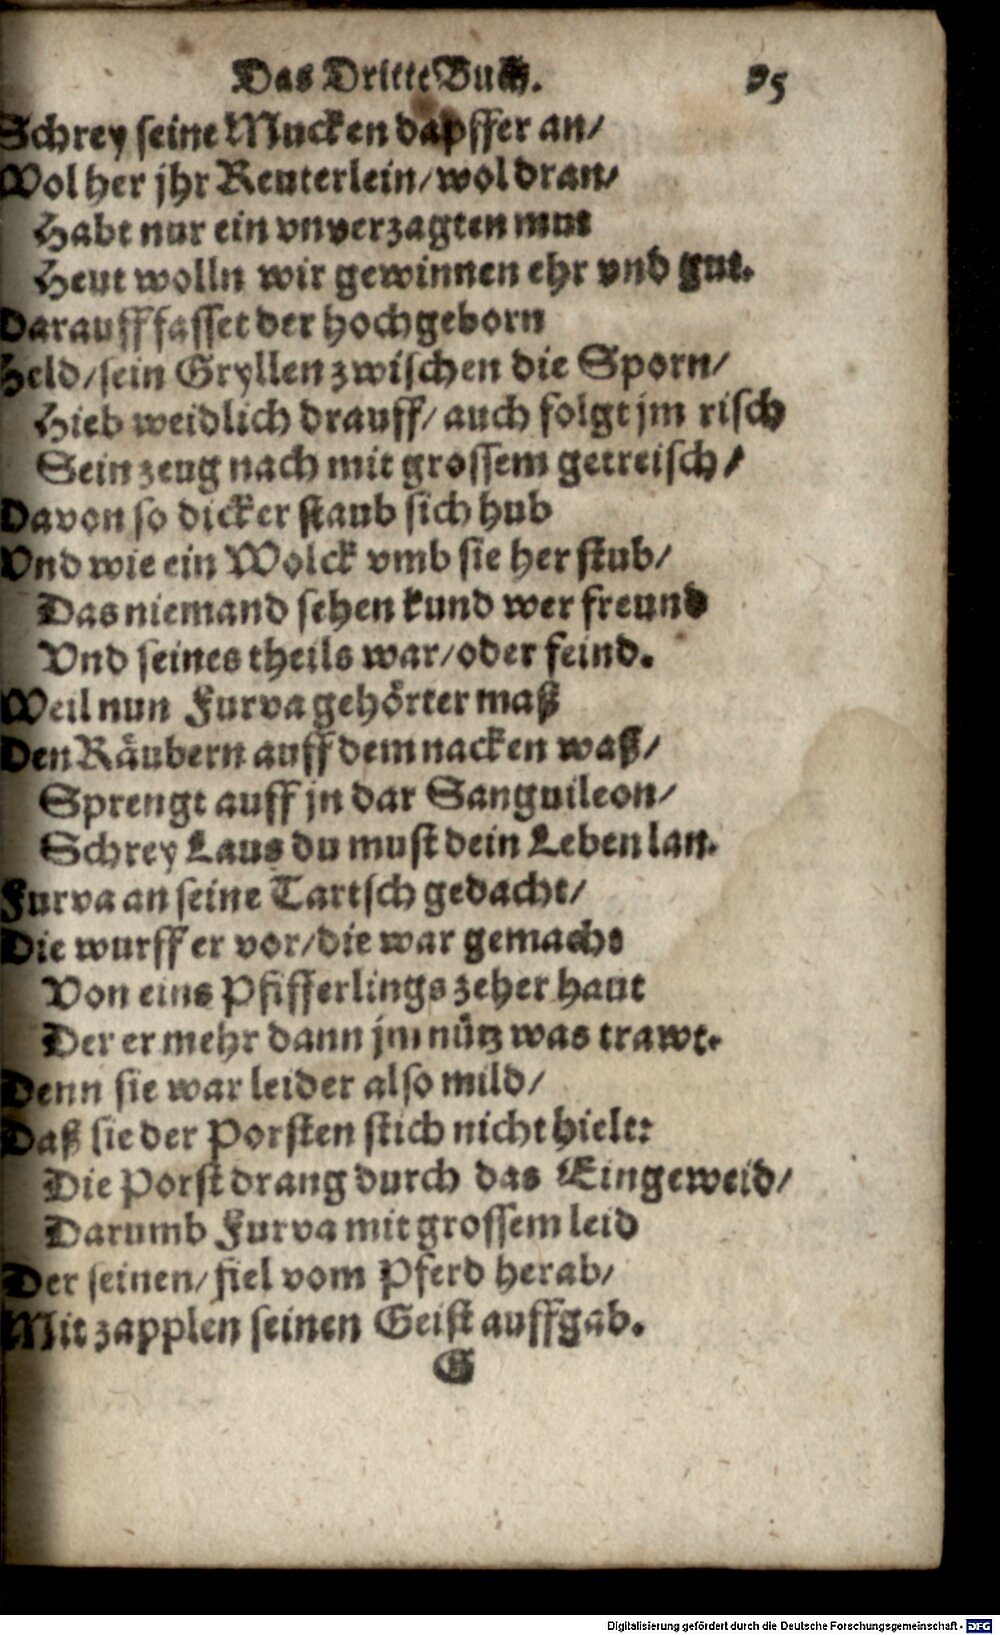 Das Dritte Buch. 95
Schrey seine Mucken dapffer an/
Wol her jhr Reuterlein/wol dran/
Habt nur ein vnverzagten mut
Heut wolln wir gewinnen ehr vnd gut.
Darauff fasset der hochgeborn
Held/sein Gryllen zwischen die Sporn/
Hieb weidlich drauff/auch folgt jm risch
Sein zeug nach mit grossem getreisch/
Davon so dicker staub sich hub
Vnd wie ein Wolck vmb sie her stub/
Das niemand sehen kund wer freund
Vnd seines theils war/oder feind.
Weil nun Furva gehörter maß
Den Räubern auff dem nacken waß/
Sprengt auff jn dar Sanguileon/
Schrey Laus du must dein Leben lan.
Furva an seine Tartsch gedacht/
Die wurff er vor/die war gemacht
Von eins Pfifferlings zeher haut
Der er mehr dann jm nütz was trawt.
Denn sie war leider also mild/
Daß sie der Porsten stich nicht hielt:
Die Porst drang durch das Eingeweid/
Darumb Furva mit grossem leid
Der seinen/fiel vom Pferd herab/
Mit zapplen seinen Geist auffgab.
G
Digitalisierung gefördert durch die Deutsche Forschungsgemeinschaft - DFG